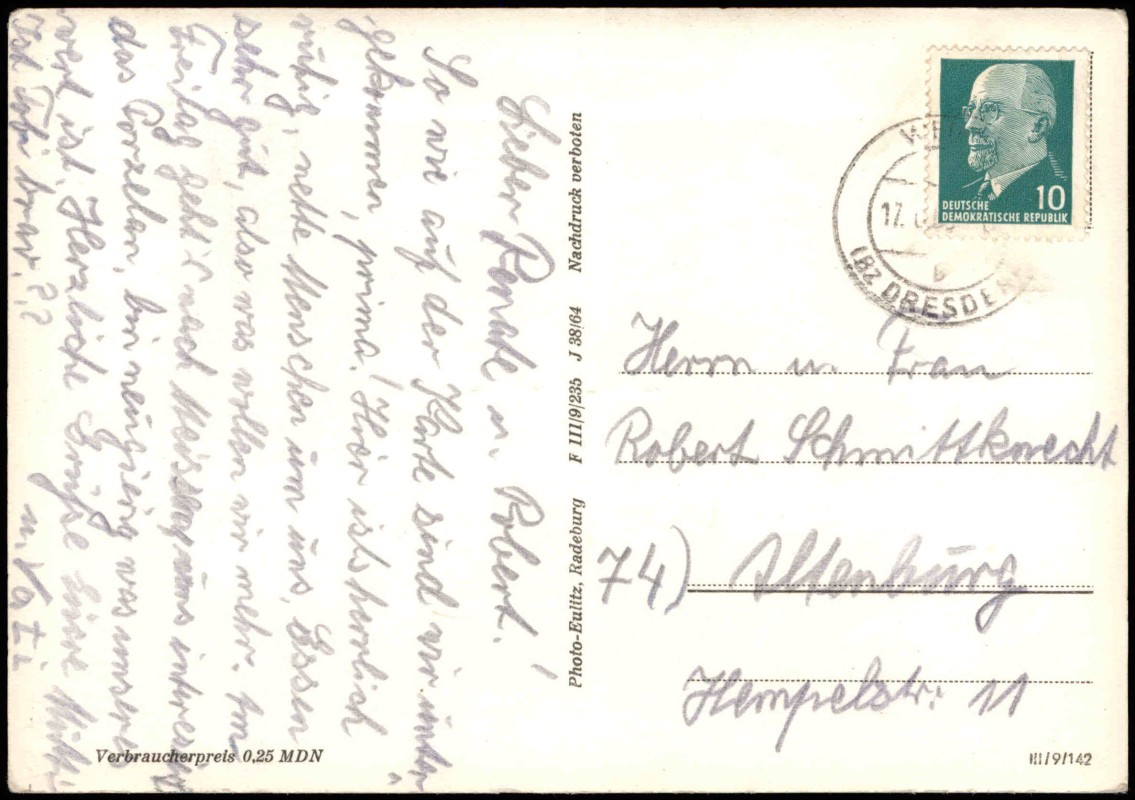 Lieber Renate u. Robert!
So wie auf der Karte sind wir unter-
gekommen, prima! Hier ists herrlich
ruhig, nette Menschen um uns, Essen
sehr gut, also was wollen wir mehr. Am
Freitag geht's nach Meissen, uns
das Porzelan, bin neugierig was unseres
wert ist. Herzliche Grüße Eure Mutti
u. Vati
Ist Tobi brav??
Verbraucherpreis 0,25 MDN
Photo-Eulitz, Radeburg F III/9/235 J 38/64 Nachdruck verboten
DEUTSCHE
DEMOKRATISCHE REPUBLIK 10
17.
b
(BZ DRESDEN
Herrn u. Frau
Robert Schmittknecht
74) Altenburg
Hempelstr. 11
III/9/142